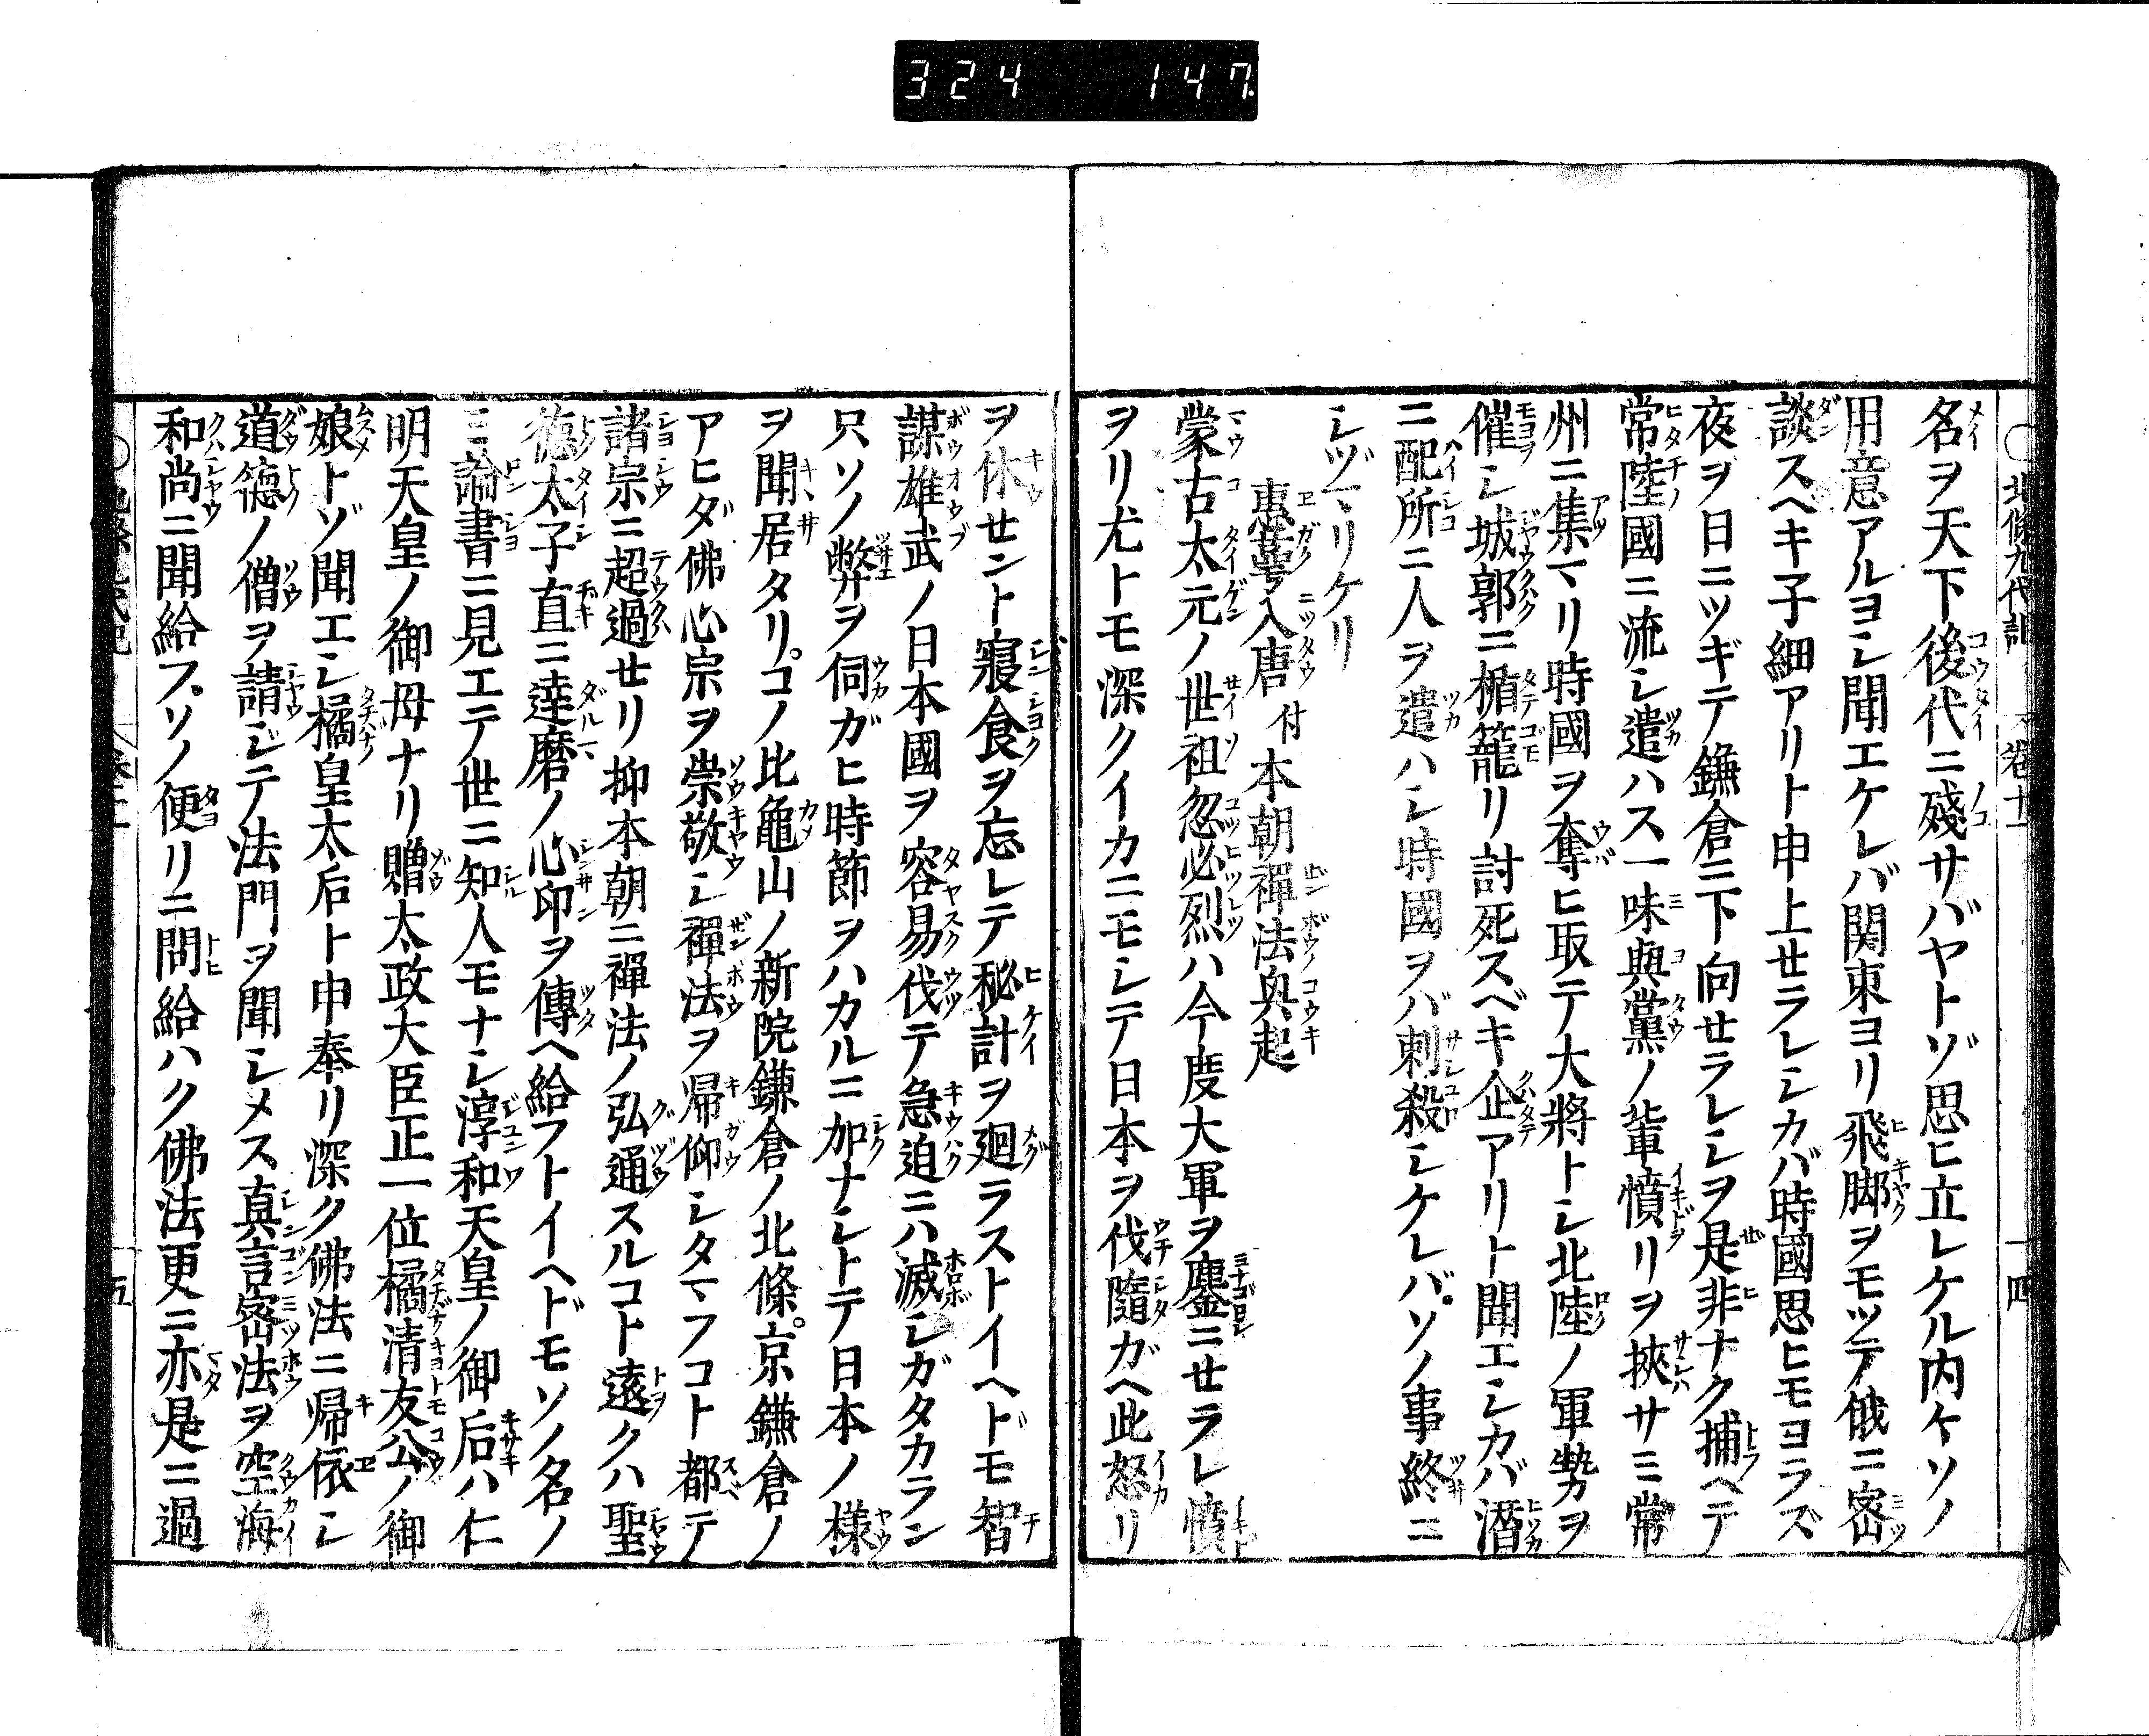 324 147
北條九代記 卷十一 四
名ヲ天下後代ニ殘サバヤトゾ思ヒ立レケル内々ソノ
用意アルヨシ聞エケレバ関東ヨリ飛脚ヲモツテ俄ニ密
談スベキ子細アリト申上セラレシカバ時國思ヒモヨラズ
夜ヲ日ニツギテ鎌倉ニ下向セラレシヲ是非ナク捕ヘテ
常陸國ニ流シ遣ハス一味與黨ノ輩憤リヲ挾サミ常
州ニ集マリ時國ヲ奪ヒ取テ大將トシ北陸ノ軍勢ヲ
催シ城郭ニ楯籠リ討死スベキ企アリト聞エシカバ潛
ニ配所ニ人ヲ遣ハシ時國ヲバ刺殺シケレバソノ事終ニ
シヅマリケリ
惠萼入唐付本朝禪法興起
蒙古太元ノ世祖忽必烈ハ今度大軍ヲ鏖ニセラレ憤
ヲリ尤トモ深クイカニモシテ日本ヲ伐隨ガヘ此怒リ
ヲ休セント寢食ヲ忘レテ秘計ヲ廻ラストイヘドモ智
謀雄武ノ日本國ヲ容易伐テ急迫ニハ滅シガタカラン
只ソノ弊ヲ伺ガヒ時節ヲハカルニ如ナシトテ日本ノ様
ヲ聞居タリ。コノ比龜山ノ新院鎌倉ノ北條。京鎌倉ノ
アヒダ佛心宗ヲ崇敬シ禪法ヲ帰仰シタマフコト都テ
諸宗ニ超過セリ抑本朝ニ禪法ノ弘通スルコト遠クハ聖
德太子直ニ達磨ノ心印ヲ傳ヘ給フトイヘドモソノ名ノ
ミ論書ニ見エテ世ニ知人モナシ淳和天皇ノ御后ハ仁
明天皇ノ御母ナリ贈太政大臣正一位橘清友公ノ御
娘トゾ聞エシ橘皇太后ト申奉リ深ク佛法ニ帰依シ
道德ノ僧ヲ請ジテ法門ヲ聞シメス真言密法ヲ空海
和尚ニ聞給フ。ソノ便リニ問給ハク佛法更ニ亦是ニ過
五